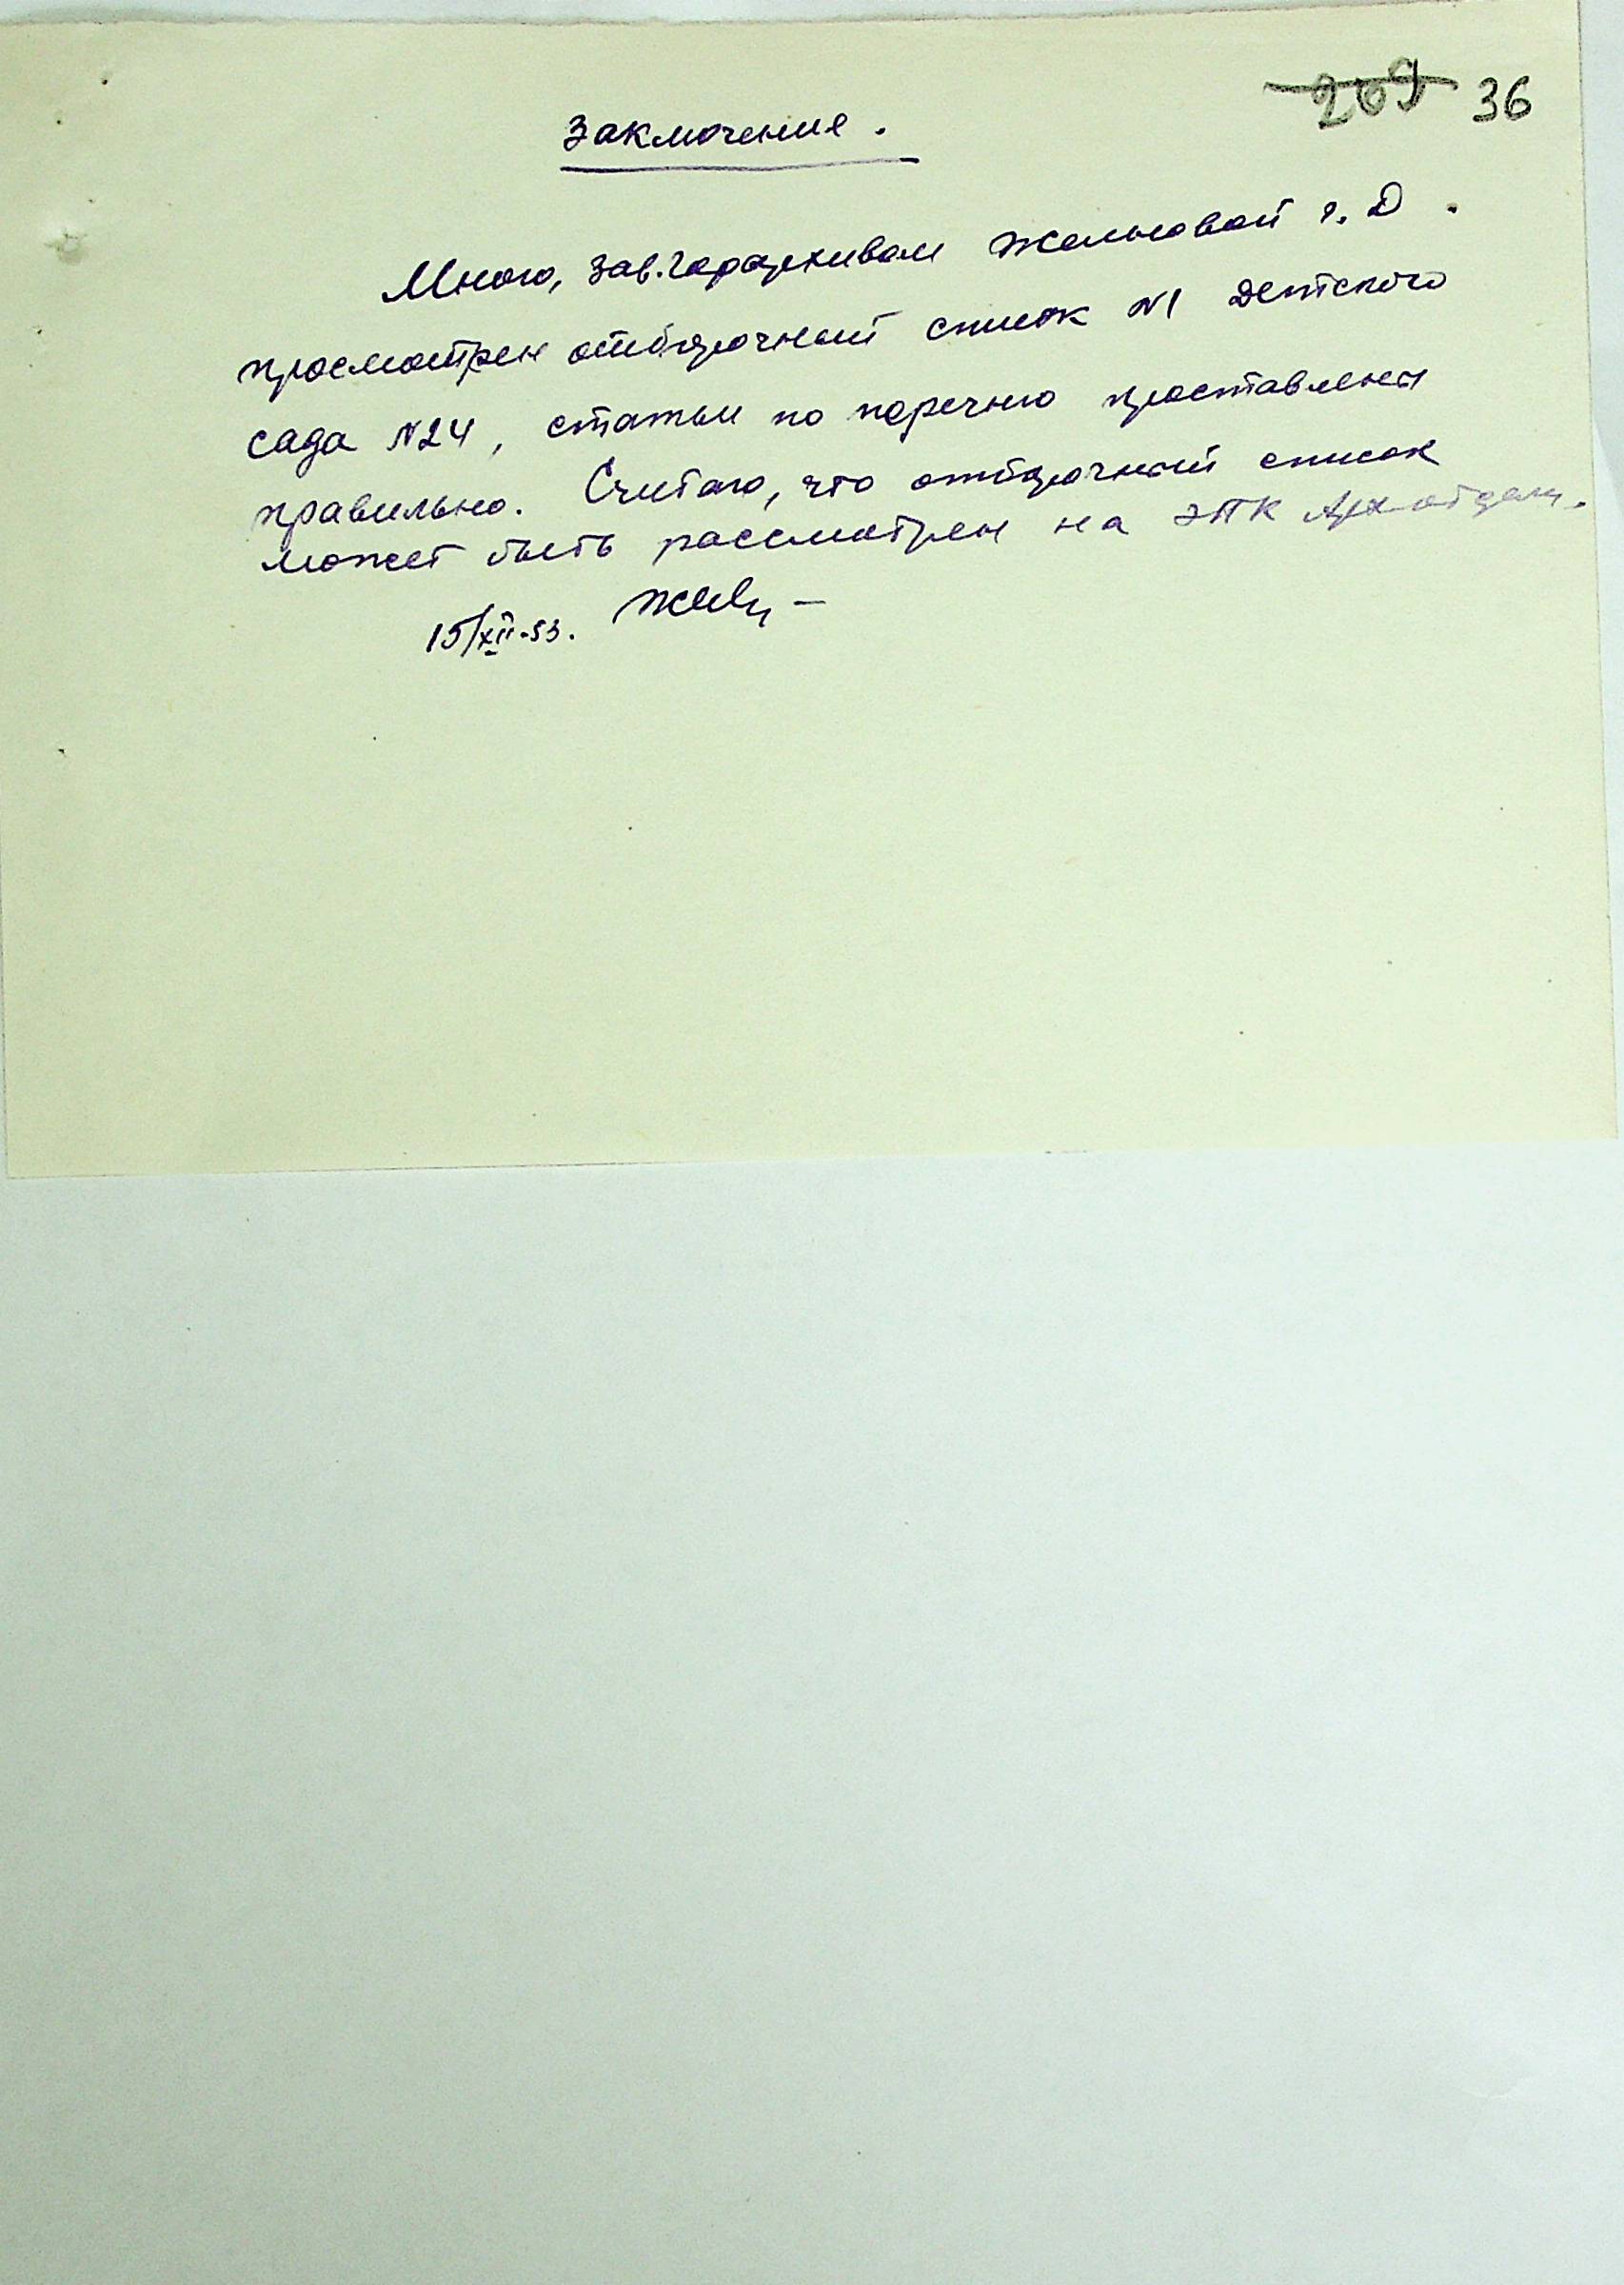 209 36
Заключение.
Мною, зав. Горархивом г. Д.
просмотрен отборочный список N1 Детского
сада N24, статьи по перечню проставлены
правильно. Считаю, что отборочный список
может быть рассмотрен на ЭПК Архотдела.
15/XII-53.